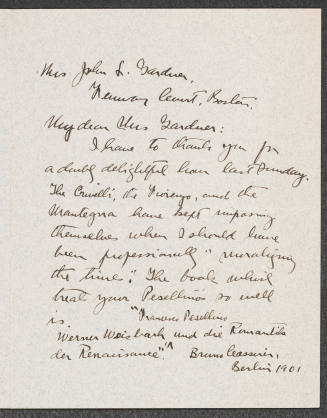 Mrs John L. Gardner,
Fenway Court, Boston.
My dear Mrs Gardner:
I have to thank you for
a doubly delightful hour last Sunday.
The Crivelli, the Fiorenzo, and the
Mantegna have kept imposing
themselves when I should have
been professionally "moralizing
the times". The book which
treat your Pesellinos so well
is "Francesco Pesellino
Werner Weisbach und die Romantik
der Renaissance". Bruno Cassirer,
Berlin 1901